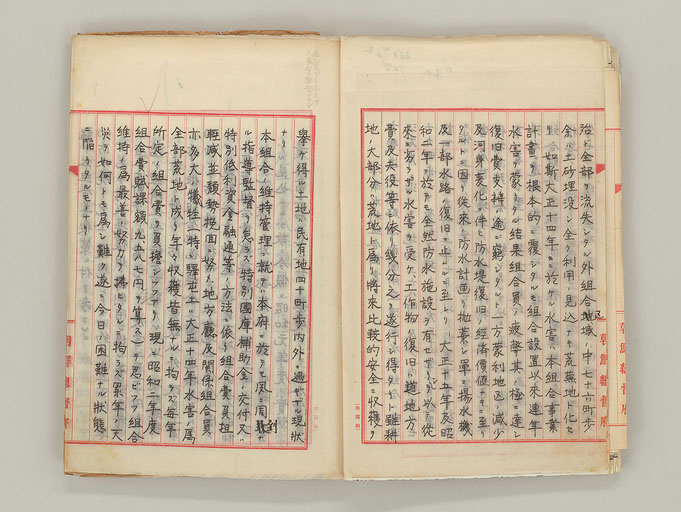 殆ト全部ヲ流失シタル外組合地域ノ中七十六町歩
余ハ土砂埋没シ全ク利用ノ見込ナキ荒蕪地ト化セ
リ如斯大正十四年ニ於ケル水害ハ本組合事業
計畫ヲ根本的ニ覆シタルモ組合設置以來連年
水害ヲ蒙リタル結果組合員ノ疲弊其ノ極ニ達シ
復旧費支辨ノ途ニ窮シタルト一方蒙利地区ノ減少
及河身変化ニ伴ヒ防水堤復旧ノ経済價値ナキニ至リ
タルトニ因リ從來ノ防水計畫ヲ抛棄シ單ニ揚水機
及一部水路ノ復旧ニ止ムルニ至レリ大正十五年及昭
和二年ニ於テモ全然防水施設ヲ有セサリシヲ以テ從
來ニ劣ラサル水害ヲ受ケ工作物ノ復旧ハ道地方
費及夫役等ニ依リ幾分之ヲ遂行シ得タリト雖耕
地ノ大部分ハ荒地ト為リ將來比較的安全ニ収穫ヲ
擧ケ得ル土地ハ民有地四十町歩内外ニ過キサル現状
ナリ
本組合ノ維持管理ニ就テハ本府ニ於テモ夙ニ周到
ナル指導監督ヲ怠ラス特別國庫補助金ノ交付又ハ
特別低利資金融通等ノ方法ニ依リ組合費負担ノ
軽減並頽勢挽回ニ努メ地方廳及関係組合員
亦多大ノ犠牲(特ニ驛屯土ハ大正十四年水害ノ為
全部荒地ト成リ年々収穫皆無ナルニ拘ラス毎年
所定ノ組合費ヲ負擔シツツアリ現ニ昭和二年度
組合費賦課額九五八七円ヲ算ス)ヲ忍ヒツツ組合
維持ノ為最善ノ努力ヲ拂ヒタルニ拘ラス累年ノ天
災ハ如何トモ為シ難ク遂ニ今日ノ困難ナル状態
ニ陥リタルモノナリ